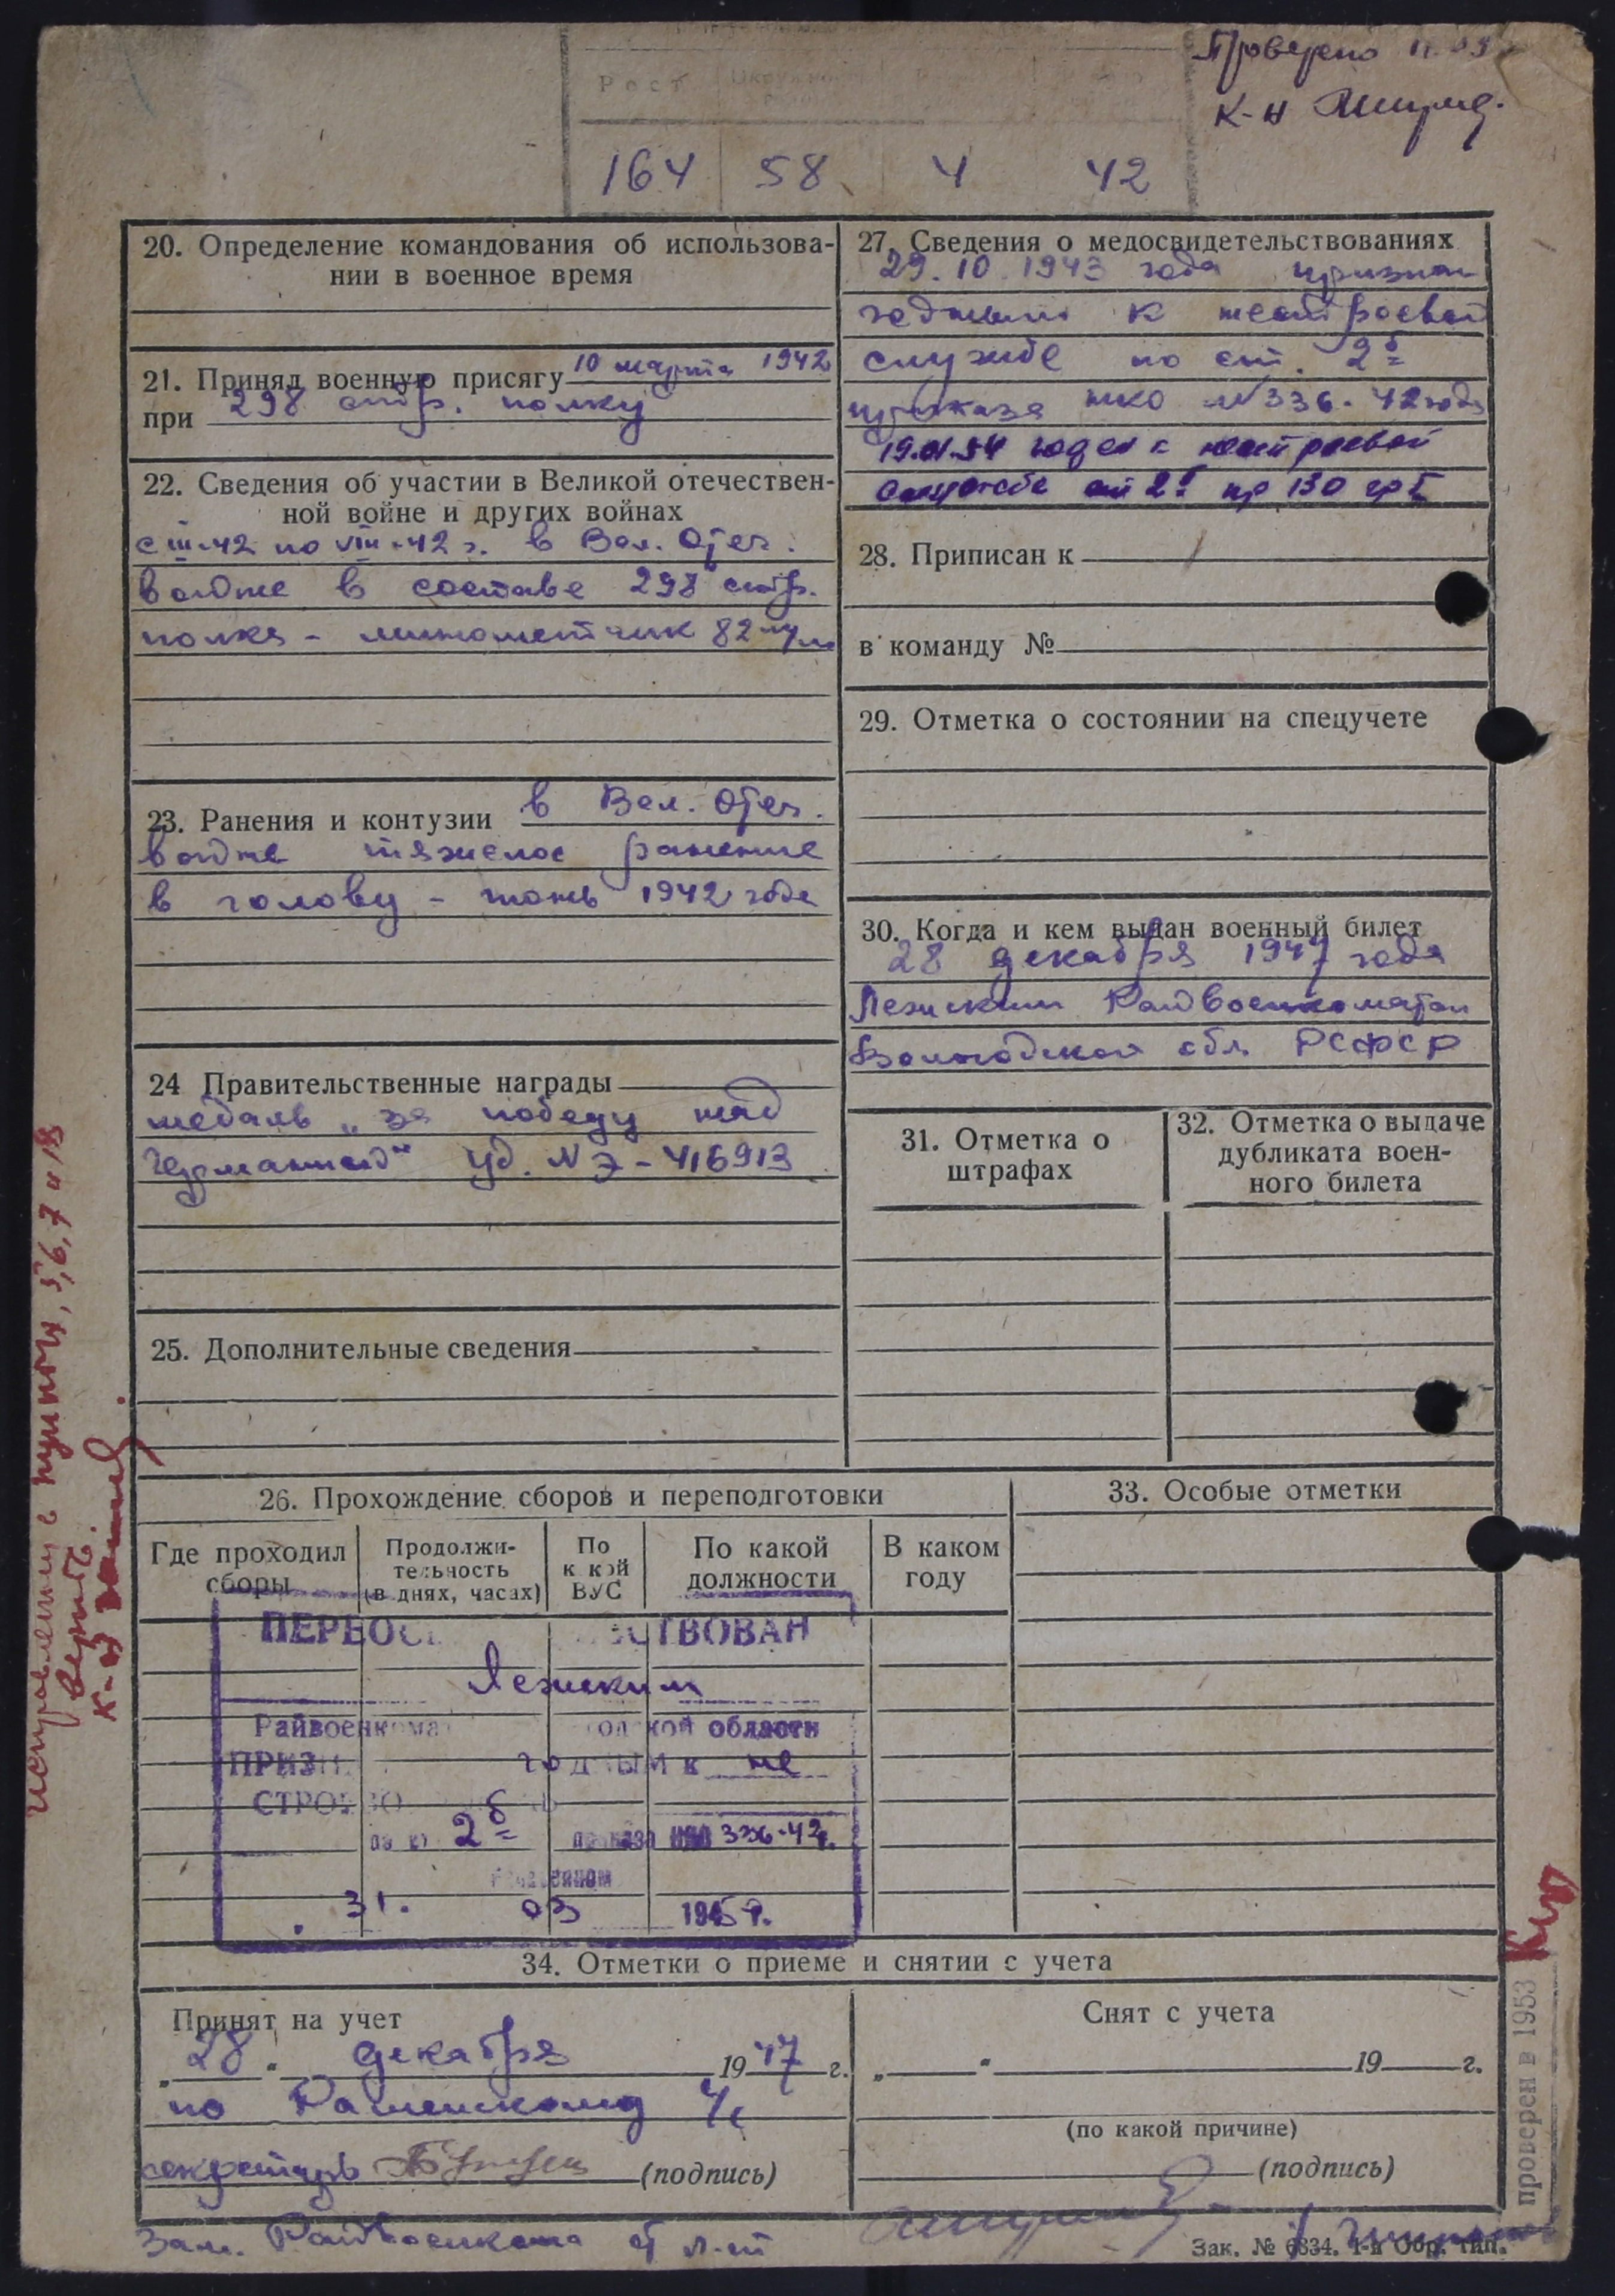 Проверено
К-н
Рост
164 58 4 42
20. Определение командования об использова-
нии в военное время
21. Принял военную присягу 10 марта 1942
при 298 стр. полку
22. Сведения об участии в Великой отечествен-
ной войне и других войнах
с III-42 по VIII-42 г. в Вел. Отеч.
войне в составе 298 стр.
полка - минометчик 82 м/м
23. Ранения и контузии в Вел. Отеч.
войне тяжелое ранение
в голову - июнь 1942 года
24 Правительственные награды
медаль „за победу над
Германией" уд. № Э-416913
25. Дополнительные сведения
27. Сведения о медосвидетельствованиях
29.10.1943 года признан
годным к нестроевой
службе по ст. 2б
приказа НКО №336-42 года
19.01.54 годен к нестроевой
службе ст 2б пр 130 гр I
28. Приписан к
в команду №
29. Отметка о состоянии на спецучете
30. Когда и кем выдан военный билет
28 декабря 1947 года
Лежским Райвоенкоматом
Вологодской обл. РСФСР
31. Отметка о
штрафах
32. Отметка о выдаче
дубликата воен-
ного билета
26. Прохождение сборов и переподготовки
Где проходил
сборы
Продолжи-
тельность
(в днях, часах)
По
к кой
ВУС
По какой
должности
В каком
году
33. Особые отметки
ПЕРЕОС СТВОВАН
Лежским
Райвоенкома одской области
ПРИЗН годным к не
СТРОЕВО
по ст 2б приказа НКО 336-42г.
31. 03 1945 г.
34. Отметки о приеме и снятии с учета
Принят на учет
„28" декабря 1947 г.
по Раменскому с/с
секретарь (подпись)
Зам. Райвоенкома ст л-т
Снят с учета
„ " 19 г.
(по какой причине)
(подпись)
Зак. № 6834. 1-я Обр. тип.
Исправленному в пунктах, 5, 6, 7 и 18
верить.
К-н
проверен в 1953